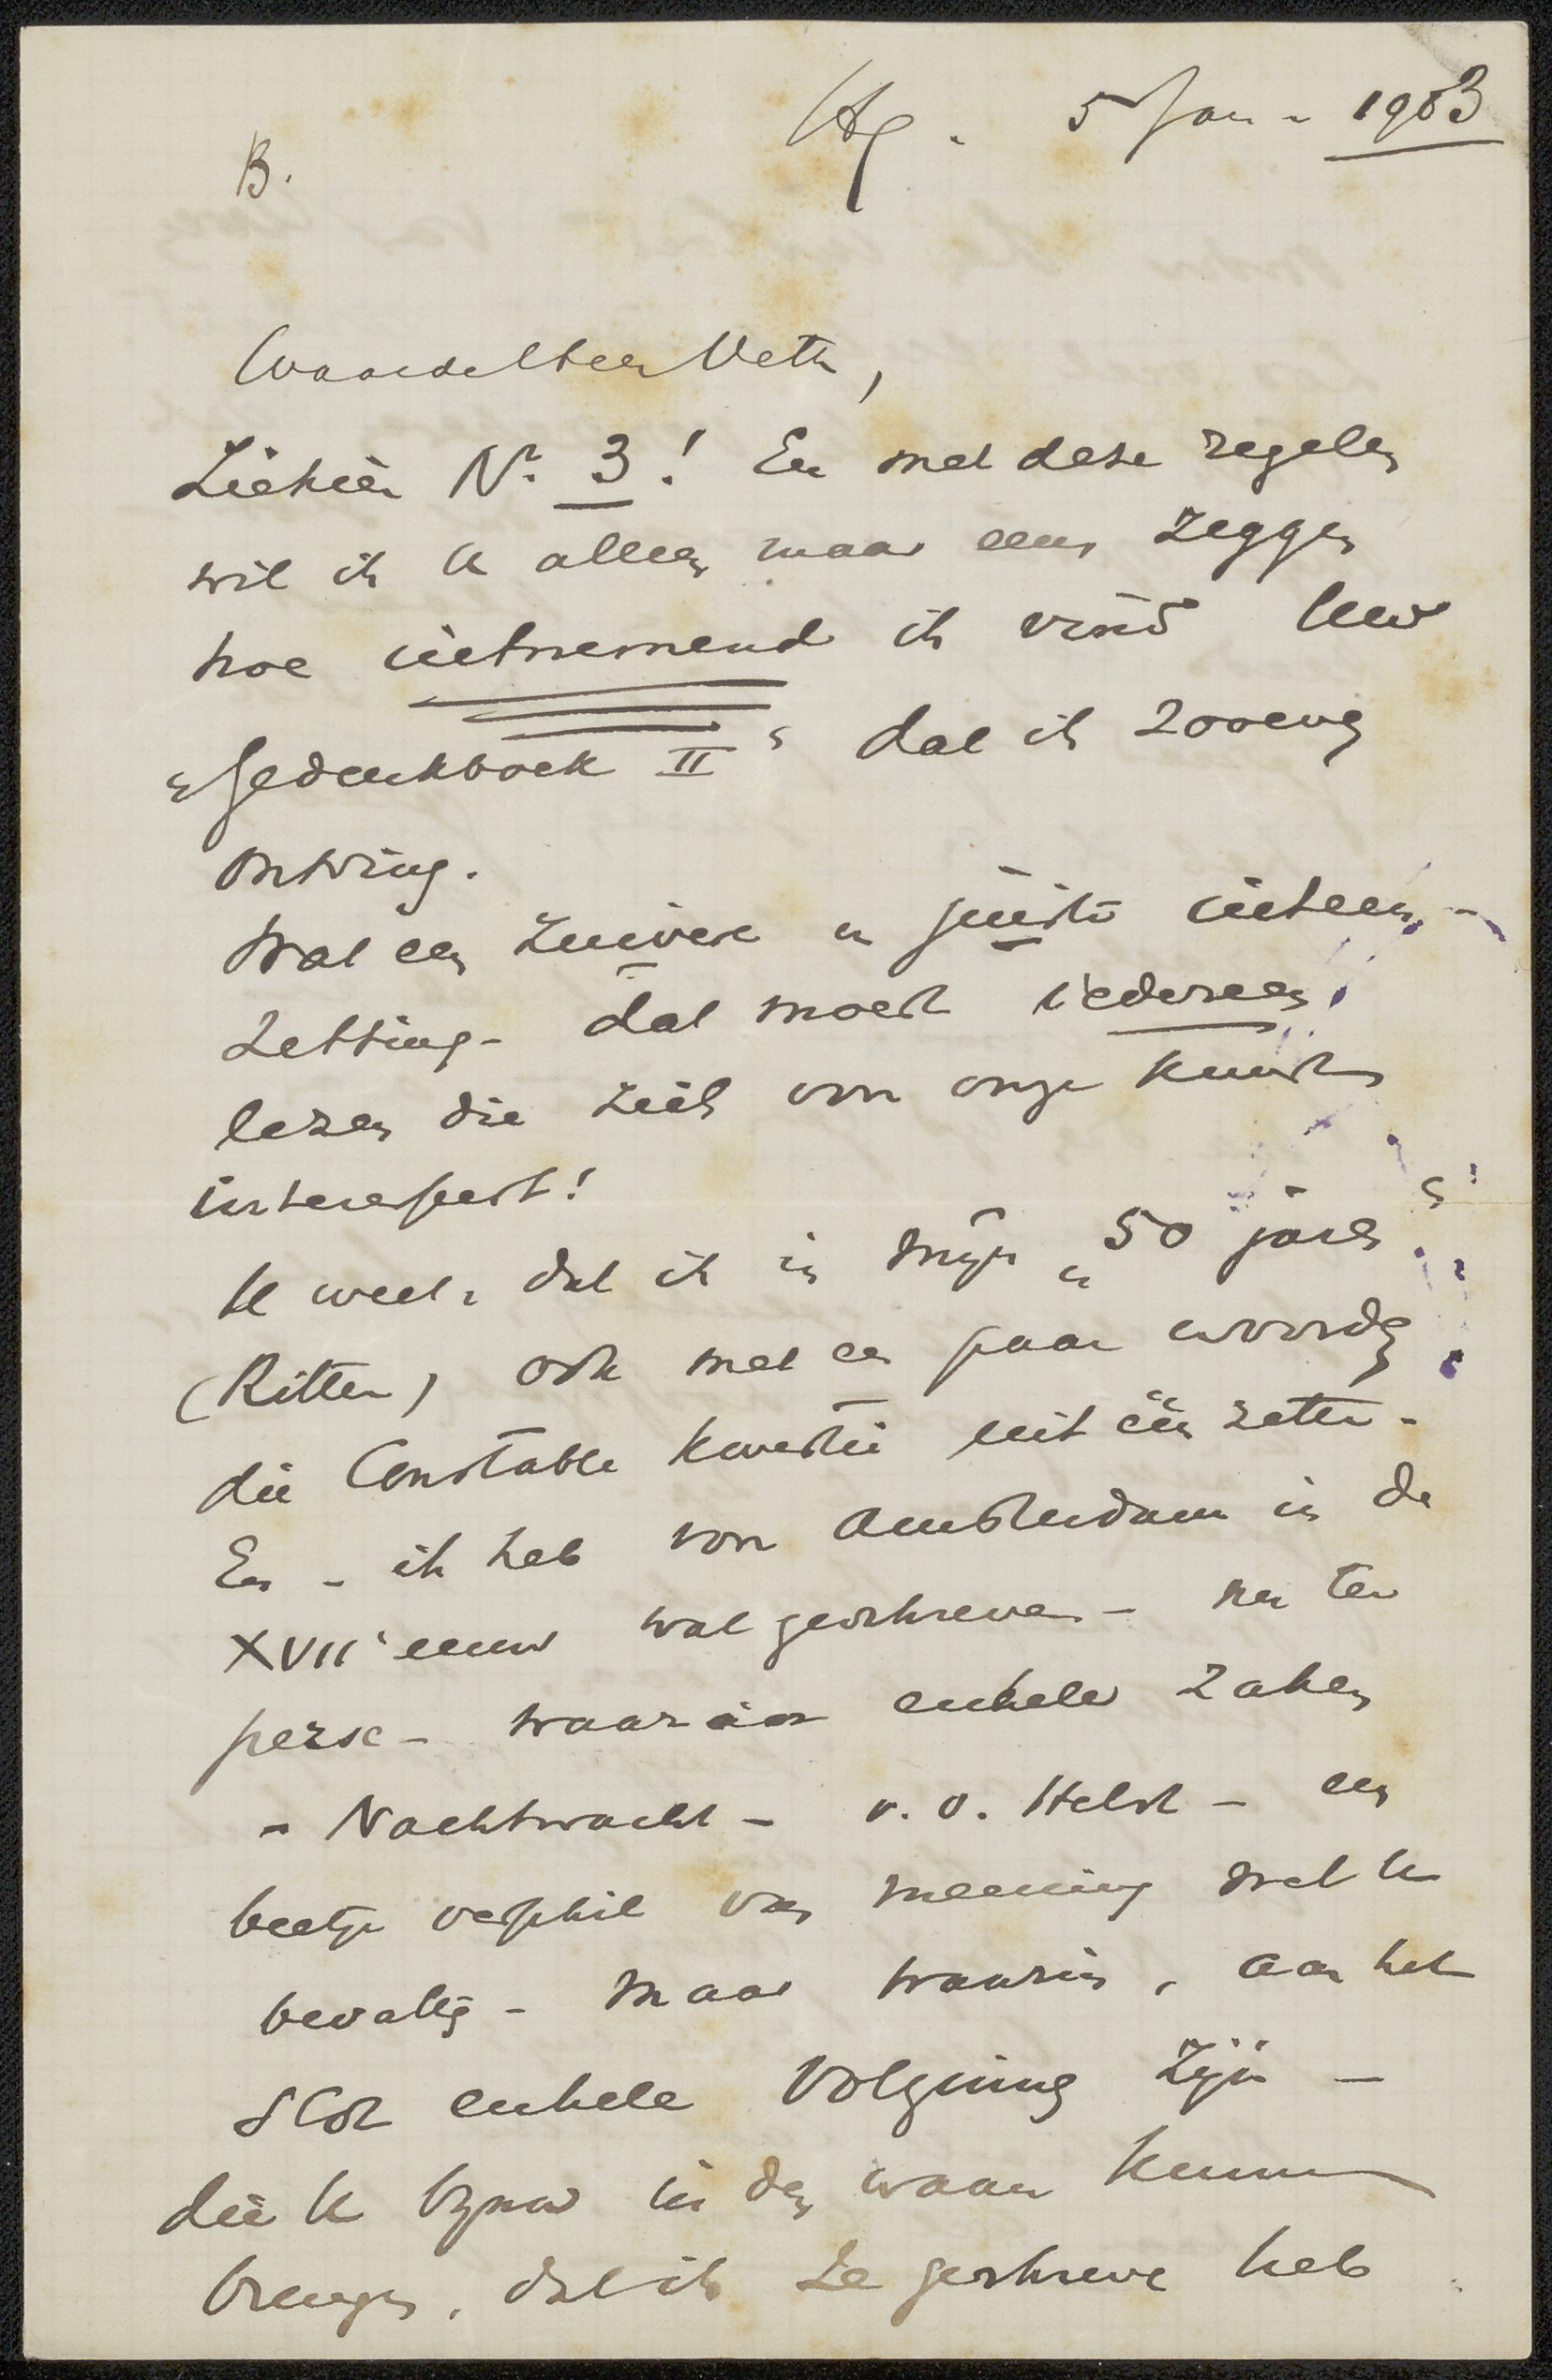 Hg. 5 Jan. 1903
B.
Waarde Heer Veth,
Ziehier No. 3! En met deze regelen
wil ik U alleen maar eens zeggen
hoe uitnemend ik vind Uw
"Gedenkboek II" dat ik zooeven
ontving.
Wat een zuivere en juiste uiteen-
zetting - dat moest iedereen
lezen die zich voor onze kunst
interesseert!
U weet, dat ik in mijn "50 jaren"
(Ritter) ook met een paar woorden
die Constable kwestie uiteen zette.
En - ik heb voor Amsterdam in de
XVIIe eeuw wat geschreven - nu ter
perse - waarin enkele zaken
- Nachtwacht - v. d. Helst - een
beetje verschil van meening met U
bevatten - maar waarin, aan het
slot enkele volzinnen zijn -
die U bijna in den waan kunnen
brengen, dat ik ze geschreven heb